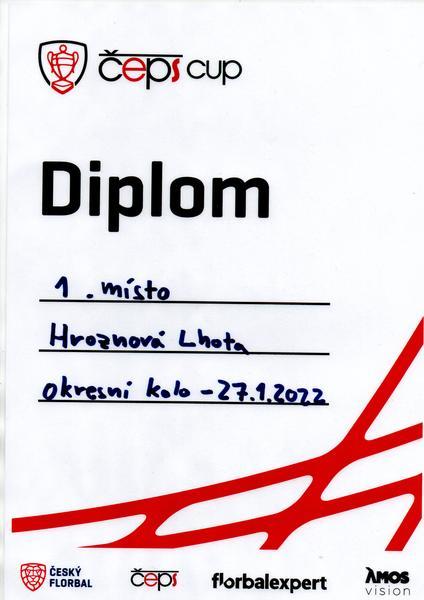 čeps cup
Diplom
1. místo
Hroznová Lhota
okresní kolo - 27.1.2022
ČESKÝ
FLORBAL
čeps
florbalexpert
AMOS
vision